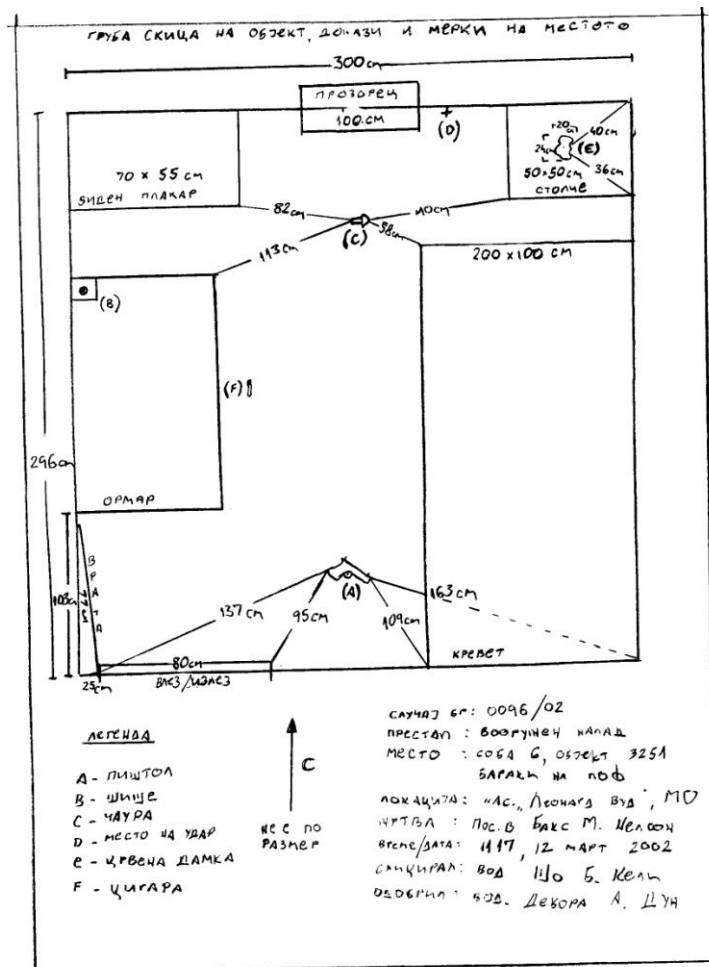 ГРУБА СКИЦА НА ОБЈЕКТ, ДОКАЗИ И МЕРКИ НА МЕСТОТО
300cm
ПРОЗОРЕЦ
100.СМ
(D)
20cm
40cm
24cm
(E)
70 x 55 см
50x50cm
36cm
ЅИДЕН ПЛАКАР
СТОЛЧЕ
82cm
110cm
(C)
58cm
113cm
200 x 100 СМ
(B)
(F)
296cm
ОРМАР
ВРАТА
108cm
77cm
(A)
163cm
137 cm
95cm
109cm
80cm
КРЕВЕТ
25cm
ВЛЕЗ/ИЗЛЕЗ
ЛЕГЕНДА
A - ПИШТОЛ
B - ШИШЕ
C - ЧАУРА
D - МЕСТО НА УДАР
E - ЦРВЕНА ДАМКА
F - ЦИГАРА
С
НЕ Е ПО
РАЗМЕР
СЛУЧАЈ БР: 0096/02
ПРЕСТАП : ВООРУЖЕН НАПАД
МЕСТО : СОБА 6, ОБЈЕКТ 3251
БАРАКИ НА ПОФ
ЛОКАЦИЈА: "АС., Леонард Вуд", МО
ЖРТВА : Пос. В Бакс М. Нелсон
ВРЕМЕ/ДАТА: 1117, 12 МАРТ 2002
СКИЦИРАЛ: ВОД Шо Б. Кели
ОДОБРИЛ: ВОД. Декора А. Дун